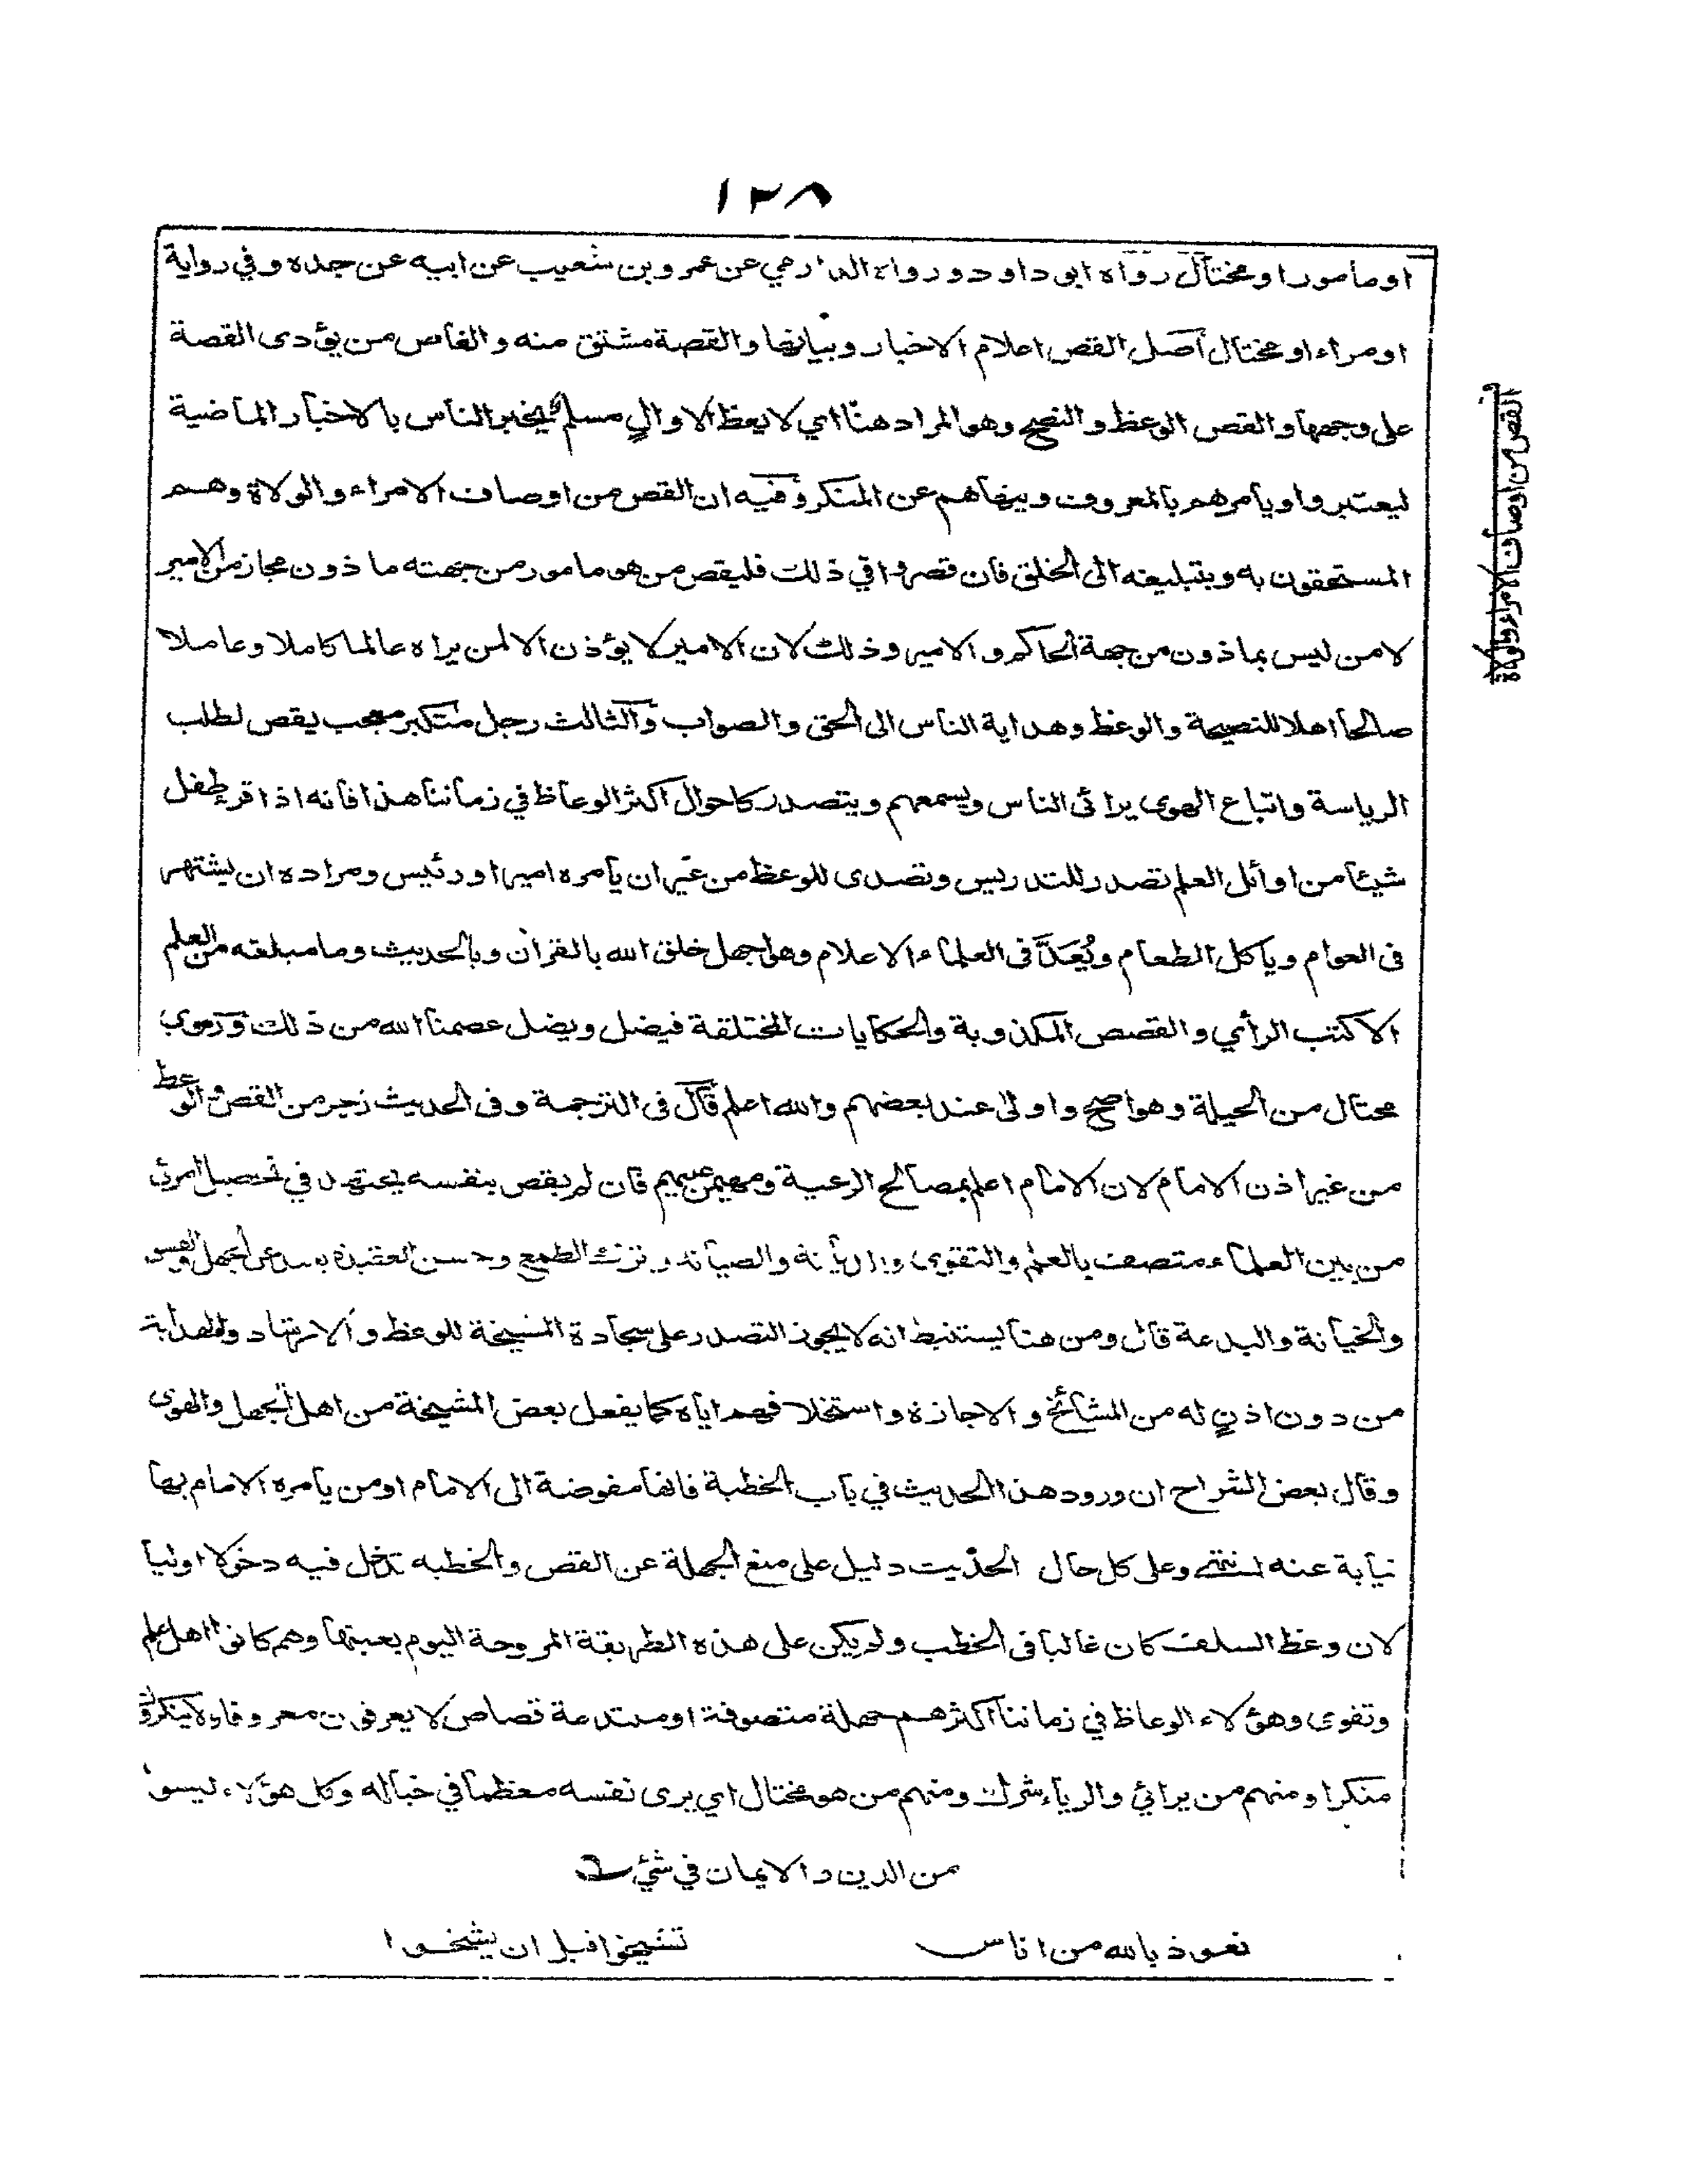 ١٢٨
او مأمور او مختال رواه ابو داود ورواه الدارمي عن عمرو بن شعيب عن ابيه عن جده وفي رواية
او مراء او مختال اصل القص اعلام الاخبار وبيانها والقصة مشتق منه والقاص من يؤدى القصة
على وجهها والقص الوعظ والنصح وهو المراد هنا اي لا يعظ الا والٍ مسلم يخبر الناس بالاخبار الماضية
ليعتبروا ويأمرهم بالمعروف وينهاهم عن المنكر وفيه ان القص من اوصاف الامراء والولاة وهم
المستحقون به وبتبليغه الى الخلق فان قصروا في ذلك فليقص من هو مامور من جهته ماذون مجاز من الامير
لا من ليس بماذون من جهة الحاكم والامير وذلك لان الامير لا يؤذن الا لمن يراه عالما كاملا وعاملا
صالحا اهلا للنصيحة والوعظ وهداية الناس الى الحق والصواب والثالث رجل متكبر معجب يقص لطلب
الرياسة واتباع الهوى يرائى الناس ويسمعهم ويتصدر كاحوال اكثر الوعاظ في زماننا هذا فانه اذا قرء طفل
شيئا من اوائل العلم تصدر للتدريس وتصدى للوعظ من غير ان يأمره امير او رئيس ومراده ان يشتهر
فى العوام وياكل الطعام ويُعَدَّ فى العلماء الاعلام وهو اجهل خلق الله بالقرآن وبالحديث وما مبلغه من العلم
الا كتب الرأي والقصص المكذوبة والحكايات المختلقة فيضل ويضل عصمنا الله من ذلك وروي
محتال من الحيلة وهو اصح واولى عند بعضهم والله اعلم قال فى الترجمة وفى الحديث زجر من القص والوعظ
من غير اذن الامام لان الامام اعلم بمصالح الرعية ومهيمن عليهم فان لم يقص بنفسه يجتهد في تحصيل امرئ
من بين العلماء متصف بالعلم والتقوى والديانة والصيانة وترك الطمع وحسن العقيدة بعيد عن الجهل والفسق
والخيانة والبدعة قال ومن هنا يستنبط انه لا يجوز التصدر على سجادة المشيخة للوعظ والارشاد والهداية
من دون اذنٍ له من المشائخ والاجازة واستخلافهم اياه كما يفعل بعض المشيخة من اهل الجهل والهوى
وقال بعض الشراح ان ورود هذا الحديث في باب الخطبة فانها مفوضة الى الامام او من يأمره الامام بها
نيابة عنه انتهى وعلى كل حال الحديث دليل على منع الجهلة عن القص والخطبه تدخل فيه دخولا اوليا
لان وعظ السلف كان غالبا فى الخطب ولم يكن على هذه الطريقة المروجة اليوم بعينها وهم كانوا اهل علم
وتقوى وهؤلاء الوعاظ في زماننا اكثرهم جهلة متصوفة او مبتدعة قصاص لا يعرفون معروفا ولا ينكرون
منكرا ومنهم من يرائي والرياء شرك ومنهم من هو مختال اي يرى نفسه معظما في خياله وكل هؤلاء ليسوا
من الدين والايمان في شيء
نعوذ بالله من اناس تشيخوا قبل ان يشيخوا
القص من اوصاف الامراء والولاة